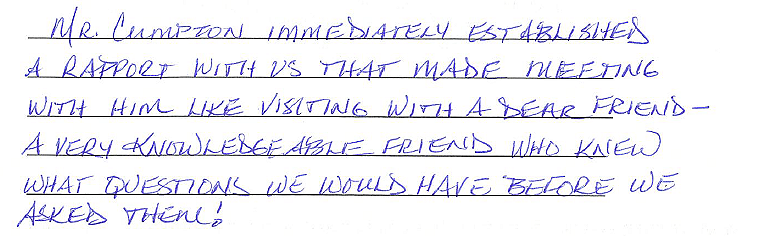 MR. CUMPTON IMMEDIATELY ESTABLISHED
A RAPPORT WITH US THAT MADE MEETING
WITH HIM LIKE VISITING WITH A DEAR FRIEND—
A VERY KNOWLEDGEABLE FRIEND WHO KNEW
WHAT QUESTIONS WE WOULD HAVE BEFORE WE
ASKED THEM!